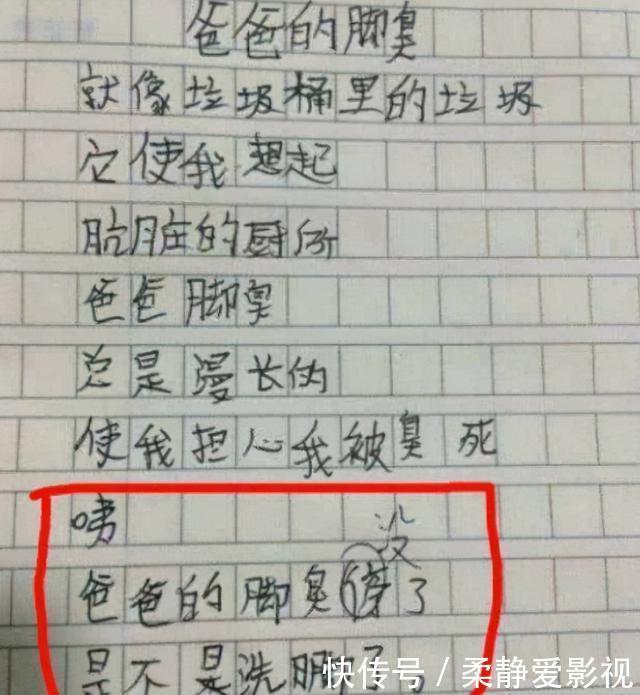 爸爸的脚臭
就像垃圾桶里的垃圾
它使我想起
肮脏的厨所
爸爸脚臭
总是漫长的
使我担心我被臭死
咦
没
爸爸的脚臭停了
是不是洗脚了
快传号／柔静爱影视